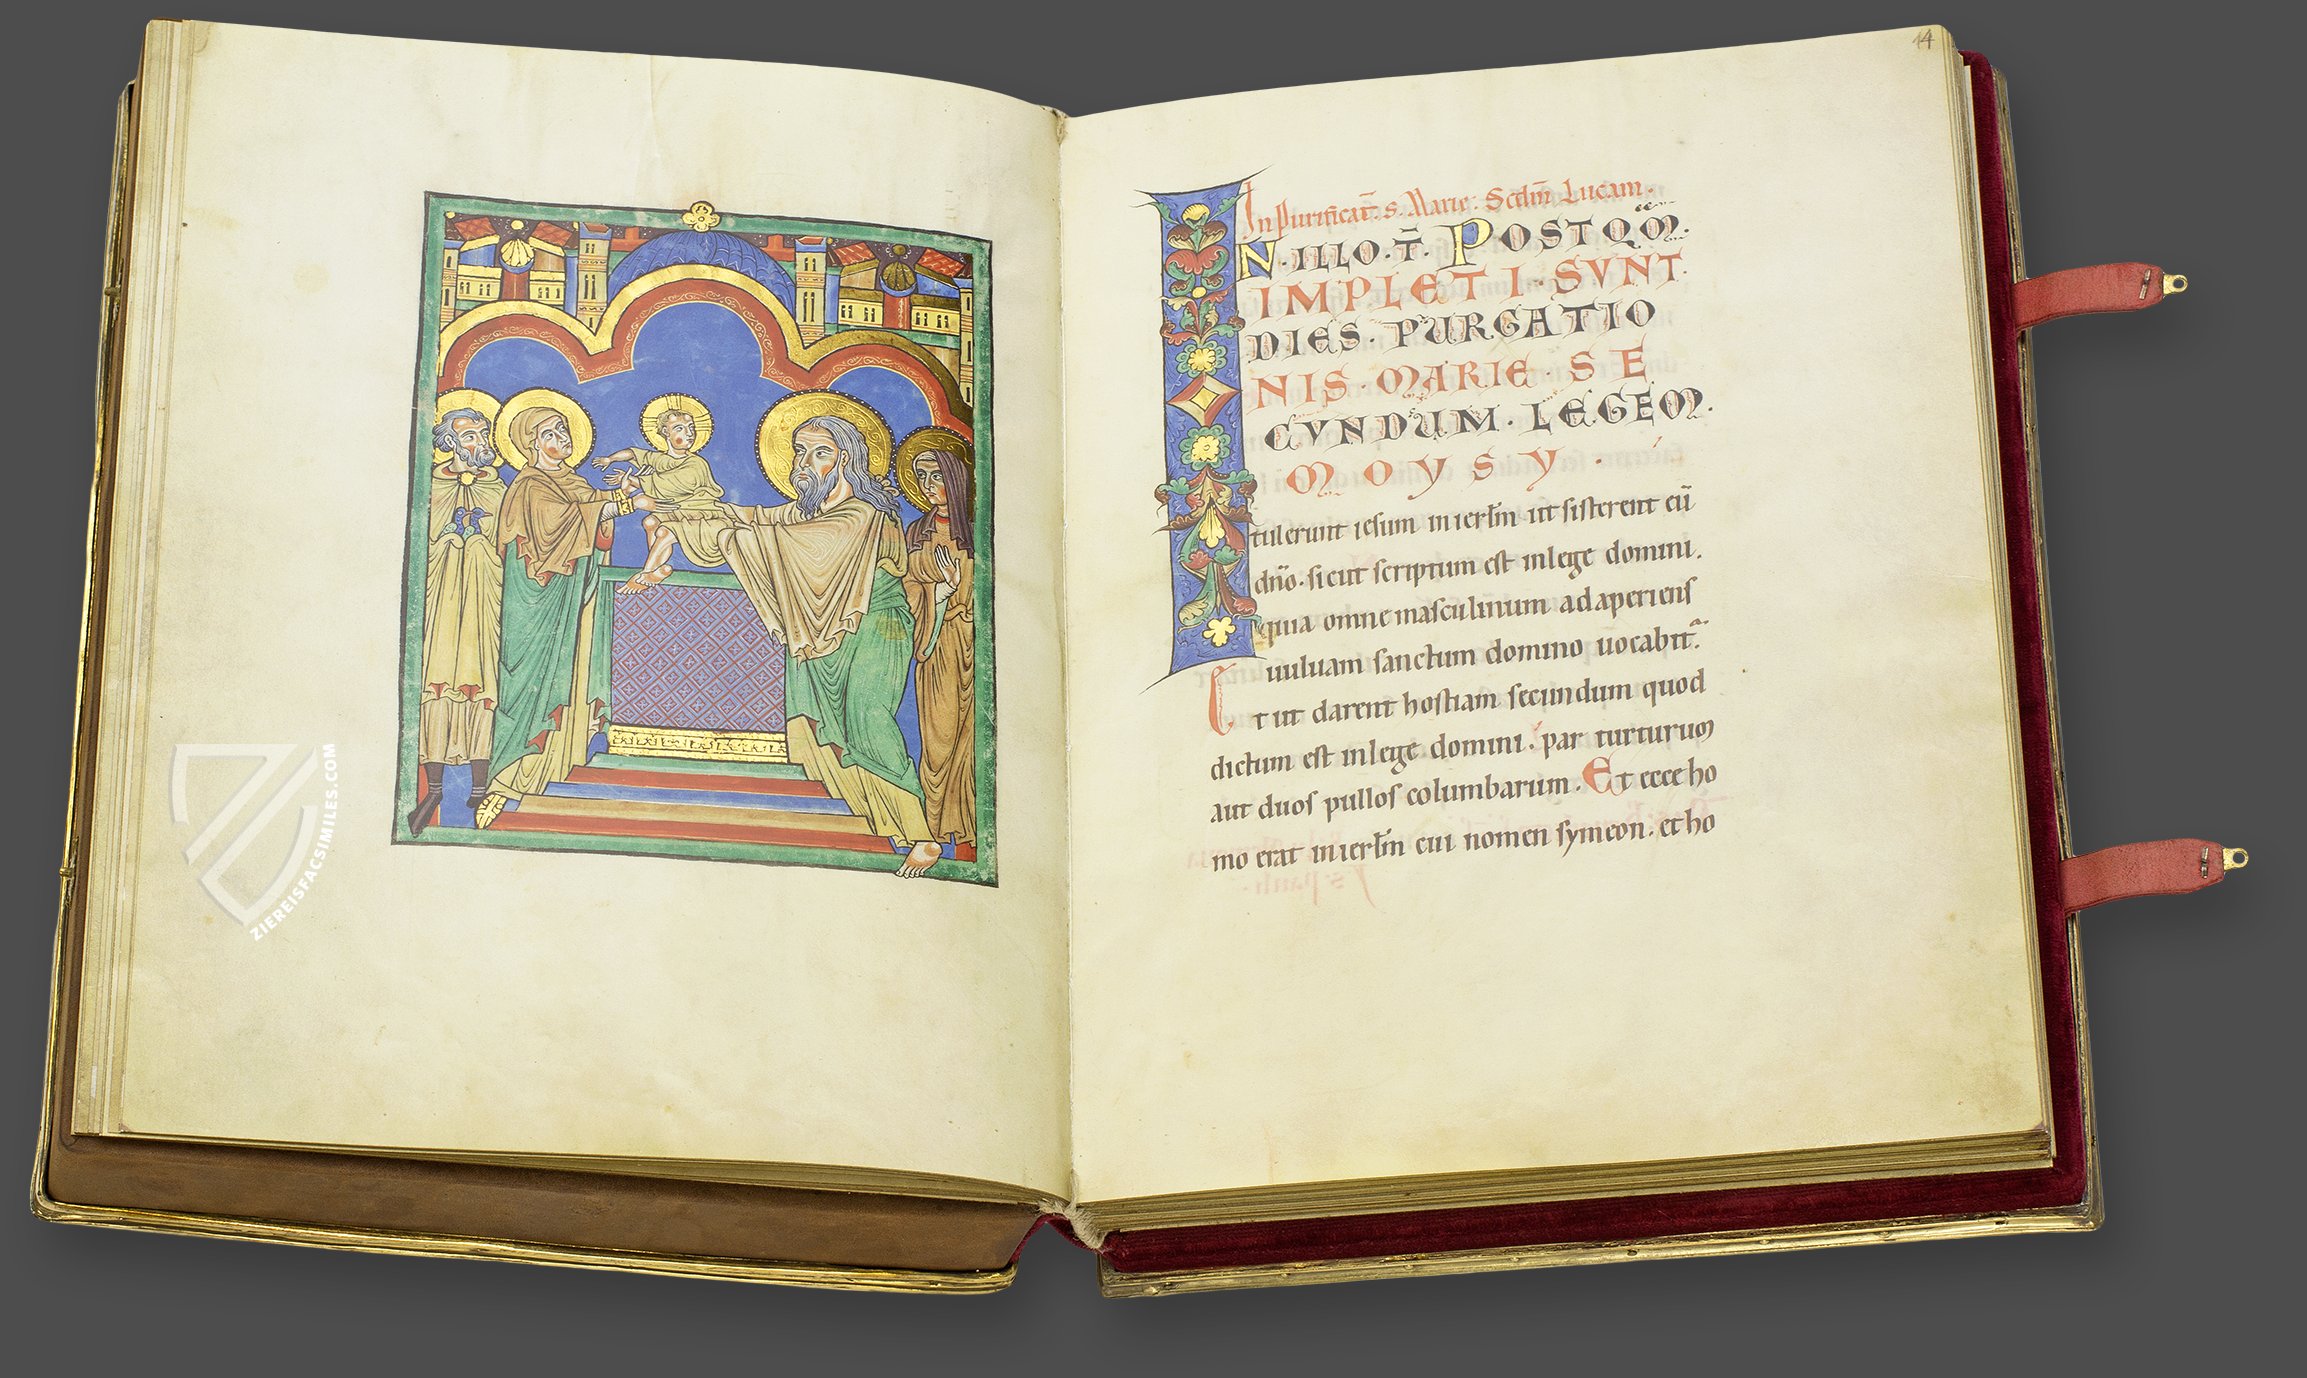 ZIEREISFACSIMILES.COM
14
In Purificat̄. s. Marie. Scd̄m Lucam.
IN. ILLO. T̄. POSTQM̄.
IMPLETI. SVNT.
DIES. PURGATIO
NIS. MARIE. SE
CVNDUM. LEGEM.
MOYSY.
tulerunt iesum in ierl̄m ut sisterent eū
dn̄o. sicut scriptum est in lege domini.
quia omne masculinum adaperiens
uuluam sanctum domino uocabit᷑.
Et ut darent hostiam secundum quod
dictum est in lege domini. par turturum
aut duos pullos columbarum. Et ecce ho
mo erat in ierl̄m cui nomen symeon. et ho